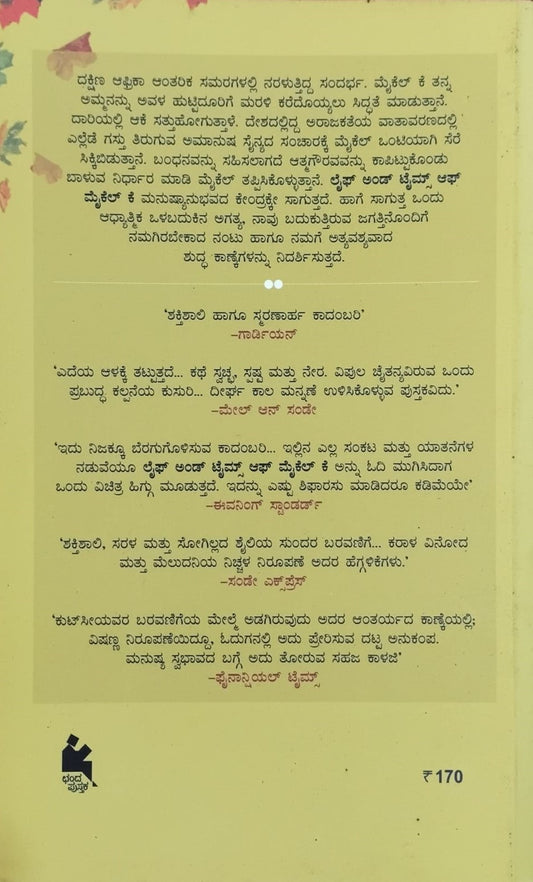 ದಕ್ಷಿಣ ಆಫ್ರಿಕಾ ಆಂತರಿಕ ಸಮರಗಳಲ್ಲಿ ನರಳುತ್ತಿದ್ದ ಸಂದರ್ಭ. ಮೈಕೆಲ್ ಕೆ ತನ್ನ
ಅಮ್ಮನನ್ನು ಅವಳ ಹುಟ್ಟಿದೂರಿಗೆ ಮರಳಿ ಕರೆದೊಯ್ಯಲು ಸಿದ್ಧತೆ ಮಾಡುತ್ತಾನೆ.
ದಾರಿಯಲ್ಲಿ ಆಕೆ ಸತ್ತುಹೋಗುತ್ತಾಳೆ. ದೇಶದಲ್ಲಿದ್ದ ಅರಾಜಕತೆಯ ವಾತಾವರಣದಲ್ಲಿ
ಎಲ್ಲೆಡೆ ಗಸ್ತು ತಿರುಗುವ ಅಮಾನುಷ ಸೈನ್ಯದ ಸಂಚಾರಕ್ಕೆ ಮೈಕೆಲ್ ಒಂಟಿಯಾಗಿ ಸೆರೆ
ಸಿಕ್ಕಿಬಿಡುತ್ತಾನೆ. ಬಂಧನವನ್ನು ಸಹಿಸಲಾಗದೆ ಆತ್ಮಗೌರವವನ್ನು ಕಾಪಿಟ್ಟುಕೊಂಡು
ಬಾಳುವ ನಿರ್ಧಾರ ಮಾಡಿ ಮೈಕೆಲ್ ತಪ್ಪಿಸಿಕೊಳ್ಳುತ್ತಾನೆ. ಲೈಫ್ ಅಂಡ್ ಟೈಮ್ಸ್ ಆಫ್
ಮೈಕೆಲ್ ಕೆ ಮನುಷ್ಯಾನುಭವದ ಕೇಂದ್ರಕ್ಕೇ ಸಾಗುತ್ತದೆ. ಹಾಗೆ ಸಾಗುತ್ತ ಒಂದು
ಆಧ್ಯಾತ್ಮಿಕ ಒಳಬದುಕಿನ ಅಗತ್ಯ, ನಾವು ಬದುಕುತ್ತಿರುವ ಜಗತ್ತಿನೊಂದಿಗೆ
ನಮಗಿರಬೇಕಾದ ನಂಟು ಹಾಗೂ ನಮಗೆ ಅತ್ಯವಶ್ಯವಾದ
ಶುದ್ಧ ಕಾಣ್ಕೆಗಳನ್ನು ನಿದರ್ಶಿಸುತ್ತದೆ.
'ಶಕ್ತಿಶಾಲಿ ಹಾಗೂ ಸ್ಮರಣಾರ್ಹ ಕಾದಂಬರಿ'
–ಗಾರ್ಡಿಯನ್
'ಎದೆಯ ಆಳಕ್ಕೆ ತಟ್ಟುತ್ತದೆ... ಕಥೆ ಸ್ವಚ್ಛ, ಸ್ಪಷ್ಟ ಮತ್ತು ನೇರ. ವಿಪುಲ ಚೈತನ್ಯವಿರುವ ಒಂದು
ಪ್ರಬುದ್ಧ ಕಲ್ಪನೆಯ ಕುಸುರಿ... ದೀರ್ಘ ಕಾಲ ಮನ್ನಣೆ ಉಳಿಸಿಕೊಳ್ಳುವ ಪುಸ್ತಕವಿದು.'
–ಮೇಲ್ ಆನ್ ಸಂಡೇ
'ಇದು ನಿಜಕ್ಕೂ ಬೆರಗುಗೊಳಿಸುವ ಕಾದಂಬರಿ... ಇಲ್ಲಿನ ಎಲ್ಲ ಸಂಕಟ ಮತ್ತು ಯಾತನೆಗಳ
ನಡುವೆಯೂ ಲೈಫ್ ಅಂಡ್ ಟೈಮ್ಸ್ ಆಫ್ ಮೈಕೆಲ್ ಕೆ ಅನ್ನು ಓದಿ ಮುಗಿಸಿದಾಗ
ಒಂದು ವಿಚಿತ್ರ ಹಿಗ್ಗು ಮೂಡುತ್ತದೆ. ಇದನ್ನು ಎಷ್ಟು ಶಿಫಾರಸು ಮಾಡಿದರೂ ಕಡಿಮೆಯೇ'
–ಈವನಿಂಗ್ ಸ್ಟಾಂಡರ್ಡ್
'ಶಕ್ತಿಶಾಲಿ, ಸರಳ ಮತ್ತು ಸೋಗಿಲ್ಲದ ಶೈಲಿಯ ಸುಂದರ ಬರವಣಿಗೆ... ಕರಾಳ ವಿನೋದ
ಮತ್ತು ಮೆಲುದನಿಯ ನಿಚ್ಚಳ ನಿರೂಪಣೆ ಅದರ ಹೆಗ್ಗಳಿಕೆಗಳು.'
–ಸಂಡೇ ಎಕ್ಸ್‌ಪ್ರೆಸ್
'ಕುಟ್‌ಸೀಯವರ ಬರವಣಿಗೆಯ ಮೇಲ್ಮೆ ಅಡಗಿರುವುದು ಅದರ ಆಂತರ್ಯದ ಕಾಣ್ಕೆಯಲ್ಲಿ;
ವಿಷಣ್ಣ ನಿರೂಪಣೆಯಿದ್ದೂ, ಓದುಗನಲ್ಲಿ ಅದು ಪ್ರೇರಿಸುವ ದಟ್ಟ ಅನುಕಂಪ.
ಮನುಷ್ಯ ಸ್ವಭಾವದ ಬಗ್ಗೆ ಅದು ತೋರುವ ಸಹಜ ಕಾಳಜಿ'
–ಫೈನಾನ್ಷಿಯಲ್ ಟೈಮ್ಸ್
ಛಂದ
ಪುಸ್ತಕ
₹ 170